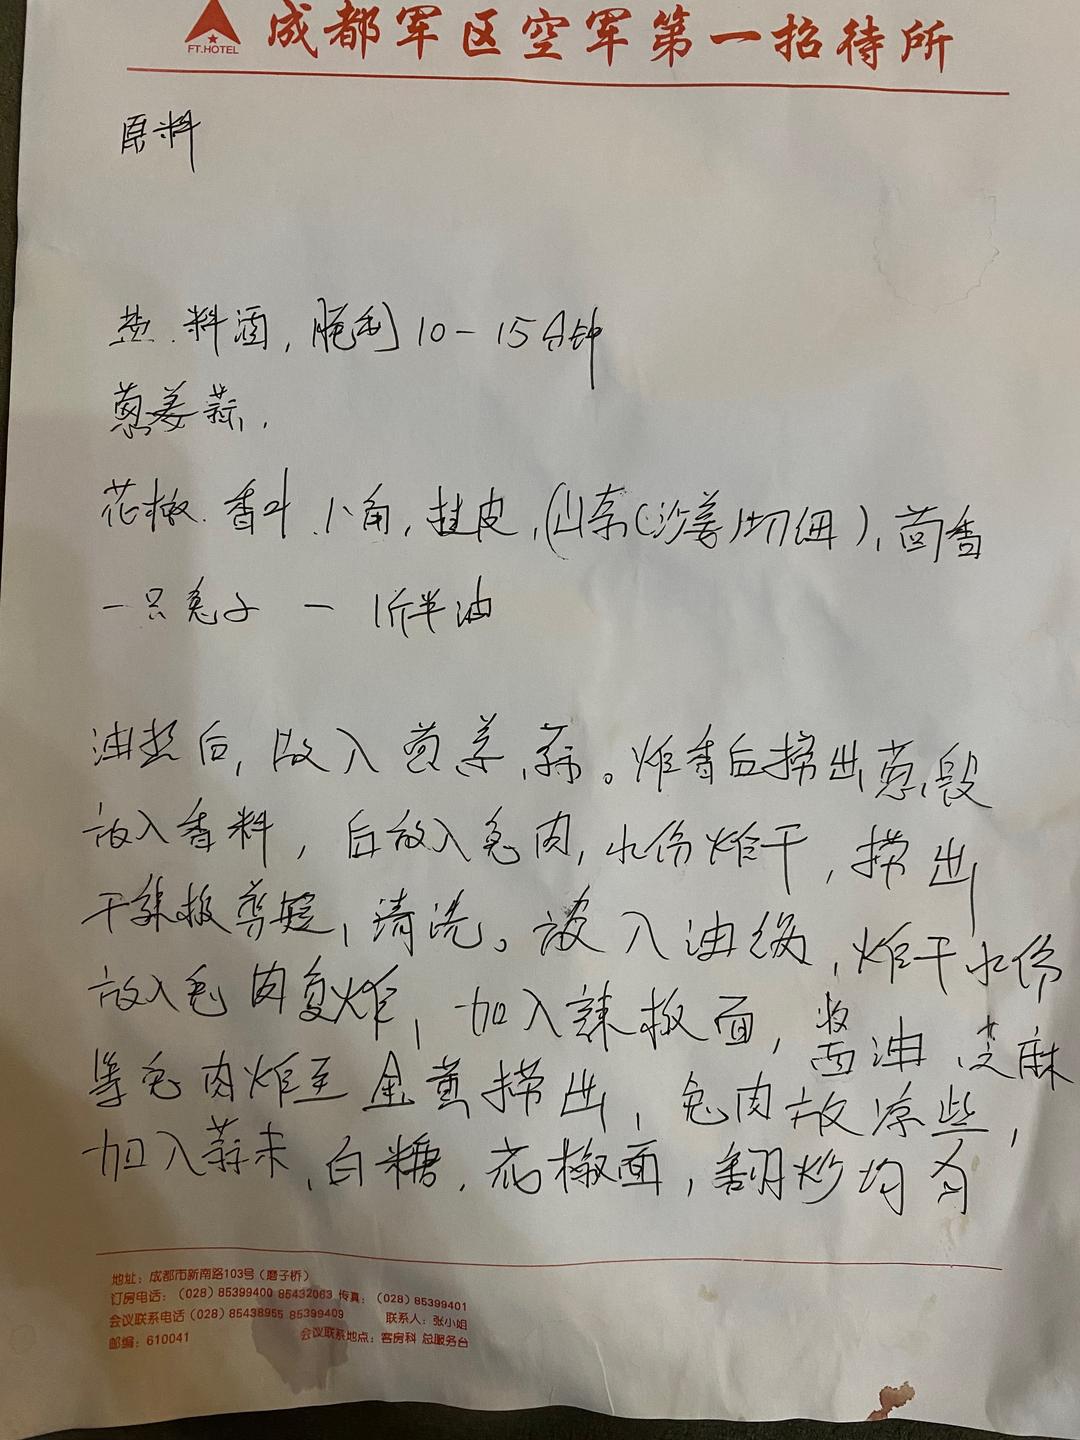 FT.HOTEL
成都军区空军第一招待所
原料
盐.料酒,腌制10-15分钟
葱姜蒜,
花椒.香叶.八角,桂皮,(山奈(沙姜)切细),茴香
一只兔子 — 1斤半油
油热后,放入葱姜,蒜。炸香后捞出葱段
放入香料,后放入兔肉,水份炸干,捞出
干辣椒剪短,清洗。放入油锅,炸干水份
放入兔肉复炸,加入辣椒面,酱油 芝麻
等兔肉炸至金黄捞出,兔肉放凉些,
加入蒜末,白糖,花椒面,翻炒均匀
地址:成都市新南路103号(磨子桥)
订房电话:(028)85399400 85432063 传真:(028)85399401
会议联系电话(028)85438955 85399409 联系人:张小姐
邮编:610041 会议联系地点:客房科 总服务台